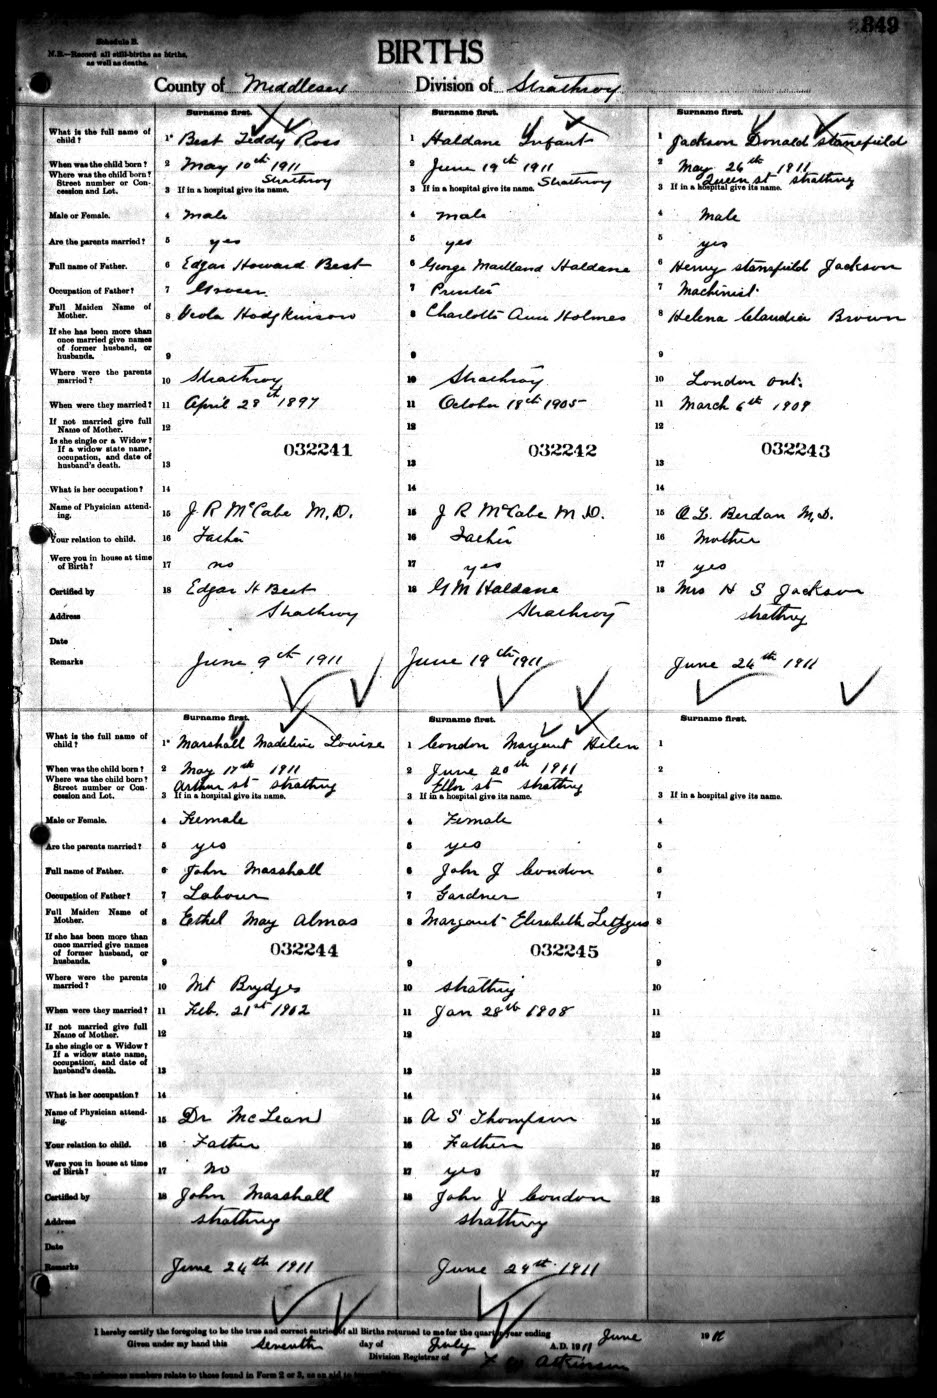 849
Schedule B.
N.B.—Record all still-births as births, as well as deaths.
BIRTHS
County of Middlesex Division of Strathroy
Surname first. Surname first. Surname first.
What is the full name of child? 1 Best Teddy Ross 1 Haldane Infant 1 Jackson Donald Stansfield
When was the child born? 2 May 10th 1911 2 June 19th 1911 2 May 26th 1911
Where was the child born? Street number or Concession and Lot. Strathroy Strathroy Queen st strathroy
3 If in a hospital give its name. 3 If in a hospital give its name. 3 If in a hospital give its name.
Male or Female. 4 male 4 male 4 Male
Are the parents married? 5 yes 5 yes 5 yes
Full name of Father. 6 Edgar Howard Best 6 George Maitland Haldane 6 Henry stansfield Jackson
Occupation of Father? 7 Grocer 7 Printer 7 Machinist
Full Maiden Name of Mother. 8 Viola Hodgkinson 8 Charlotte Ann Holmes 8 Helena Claudia Brown
If she has been more than once married give names of former husband, or husbands. 9 9 9
Where were the parents married? 10 Strathroy 10 Strathroy 10 London ont.
When were they married? 11 April 28th 1897 11 October 18th 1905 11 March 6th 1909
If not married give full Name of Mother. 12 12 12
Is she single or a Widow? If a widow state name, occupation, and date of husband's death. 13 032241 13 032242 13 032243
What is her occupation? 14 14 14
Name of Physician attending. 15 J R McCabe M.D. 15 J R McCabe M D. 15 A L. Berdan M.D.
Your relation to child. 16 Father 16 Father 16 Mother
Were you in house at time of Birth? 17 no 17 yes 17 yes
Certified by 18 Edgar H Best 18 G M Haldane 18 Mrs H S Jackson
Address Strathroy Strathroy strathroy
Date
Remarks June 9th 1911 June 19th 1911 June 24th 1911
Surname first. Surname first. Surname first.
What is the full name of child? 1 Marshall Madeline Louise 1 Condon Margaret Helen 1
When was the child born? 2 May 17th 1911 2 June 20th 1911 2
Where was the child born? Street number or Concession and Lot. Arthur st strathroy Ellor st strathroy
3 If in a hospital give its name. 3 If in a hospital give its name. 3 If in a hospital give its name.
Male or Female. 4 Female 4 Female 4
Are the parents married? 5 yes 5 yes 5
Full name of Father. 6 John Marshall 6 John J Condon 6
Occupation of Father? 7 Labour 7 Gardner 7
Full Maiden Name of Mother. 8 Ethel May Almas 8 Margaret Elizabeth 8
If she has been more than once married give names of former husband, or husbands. 9 032244 9 032245 9
Where were the parents married? 10 Mt Brydges 10 strathroy 10
When were they married? 11 Feb. 21st 1902 11 Jan 28th 1908 11
If not married give full Name of Mother. 12 12 12
Is she single or a Widow? If a widow state name, occupation, and date of husband's death. 13 13 13
What is her occupation? 14 14 14
Name of Physician attending. 15 Dr McLean 15 A S Thompson 15
Your relation to child. 16 Father 16 Father 16
Were you in house at time of Birth? 17 No 17 yes 17
Certified by 18 John Marshall 18 John J Condon 18
Address strathroy strathroy
Date
Remarks June 24th 1911 June 29th 1911
I hereby certify the foregoing to be the true and correct entries of all Births returned to me for the quarter year ending June 1911
Given under my hand this seventh day of July A.D. 1911
Division Registrar of Atkinson